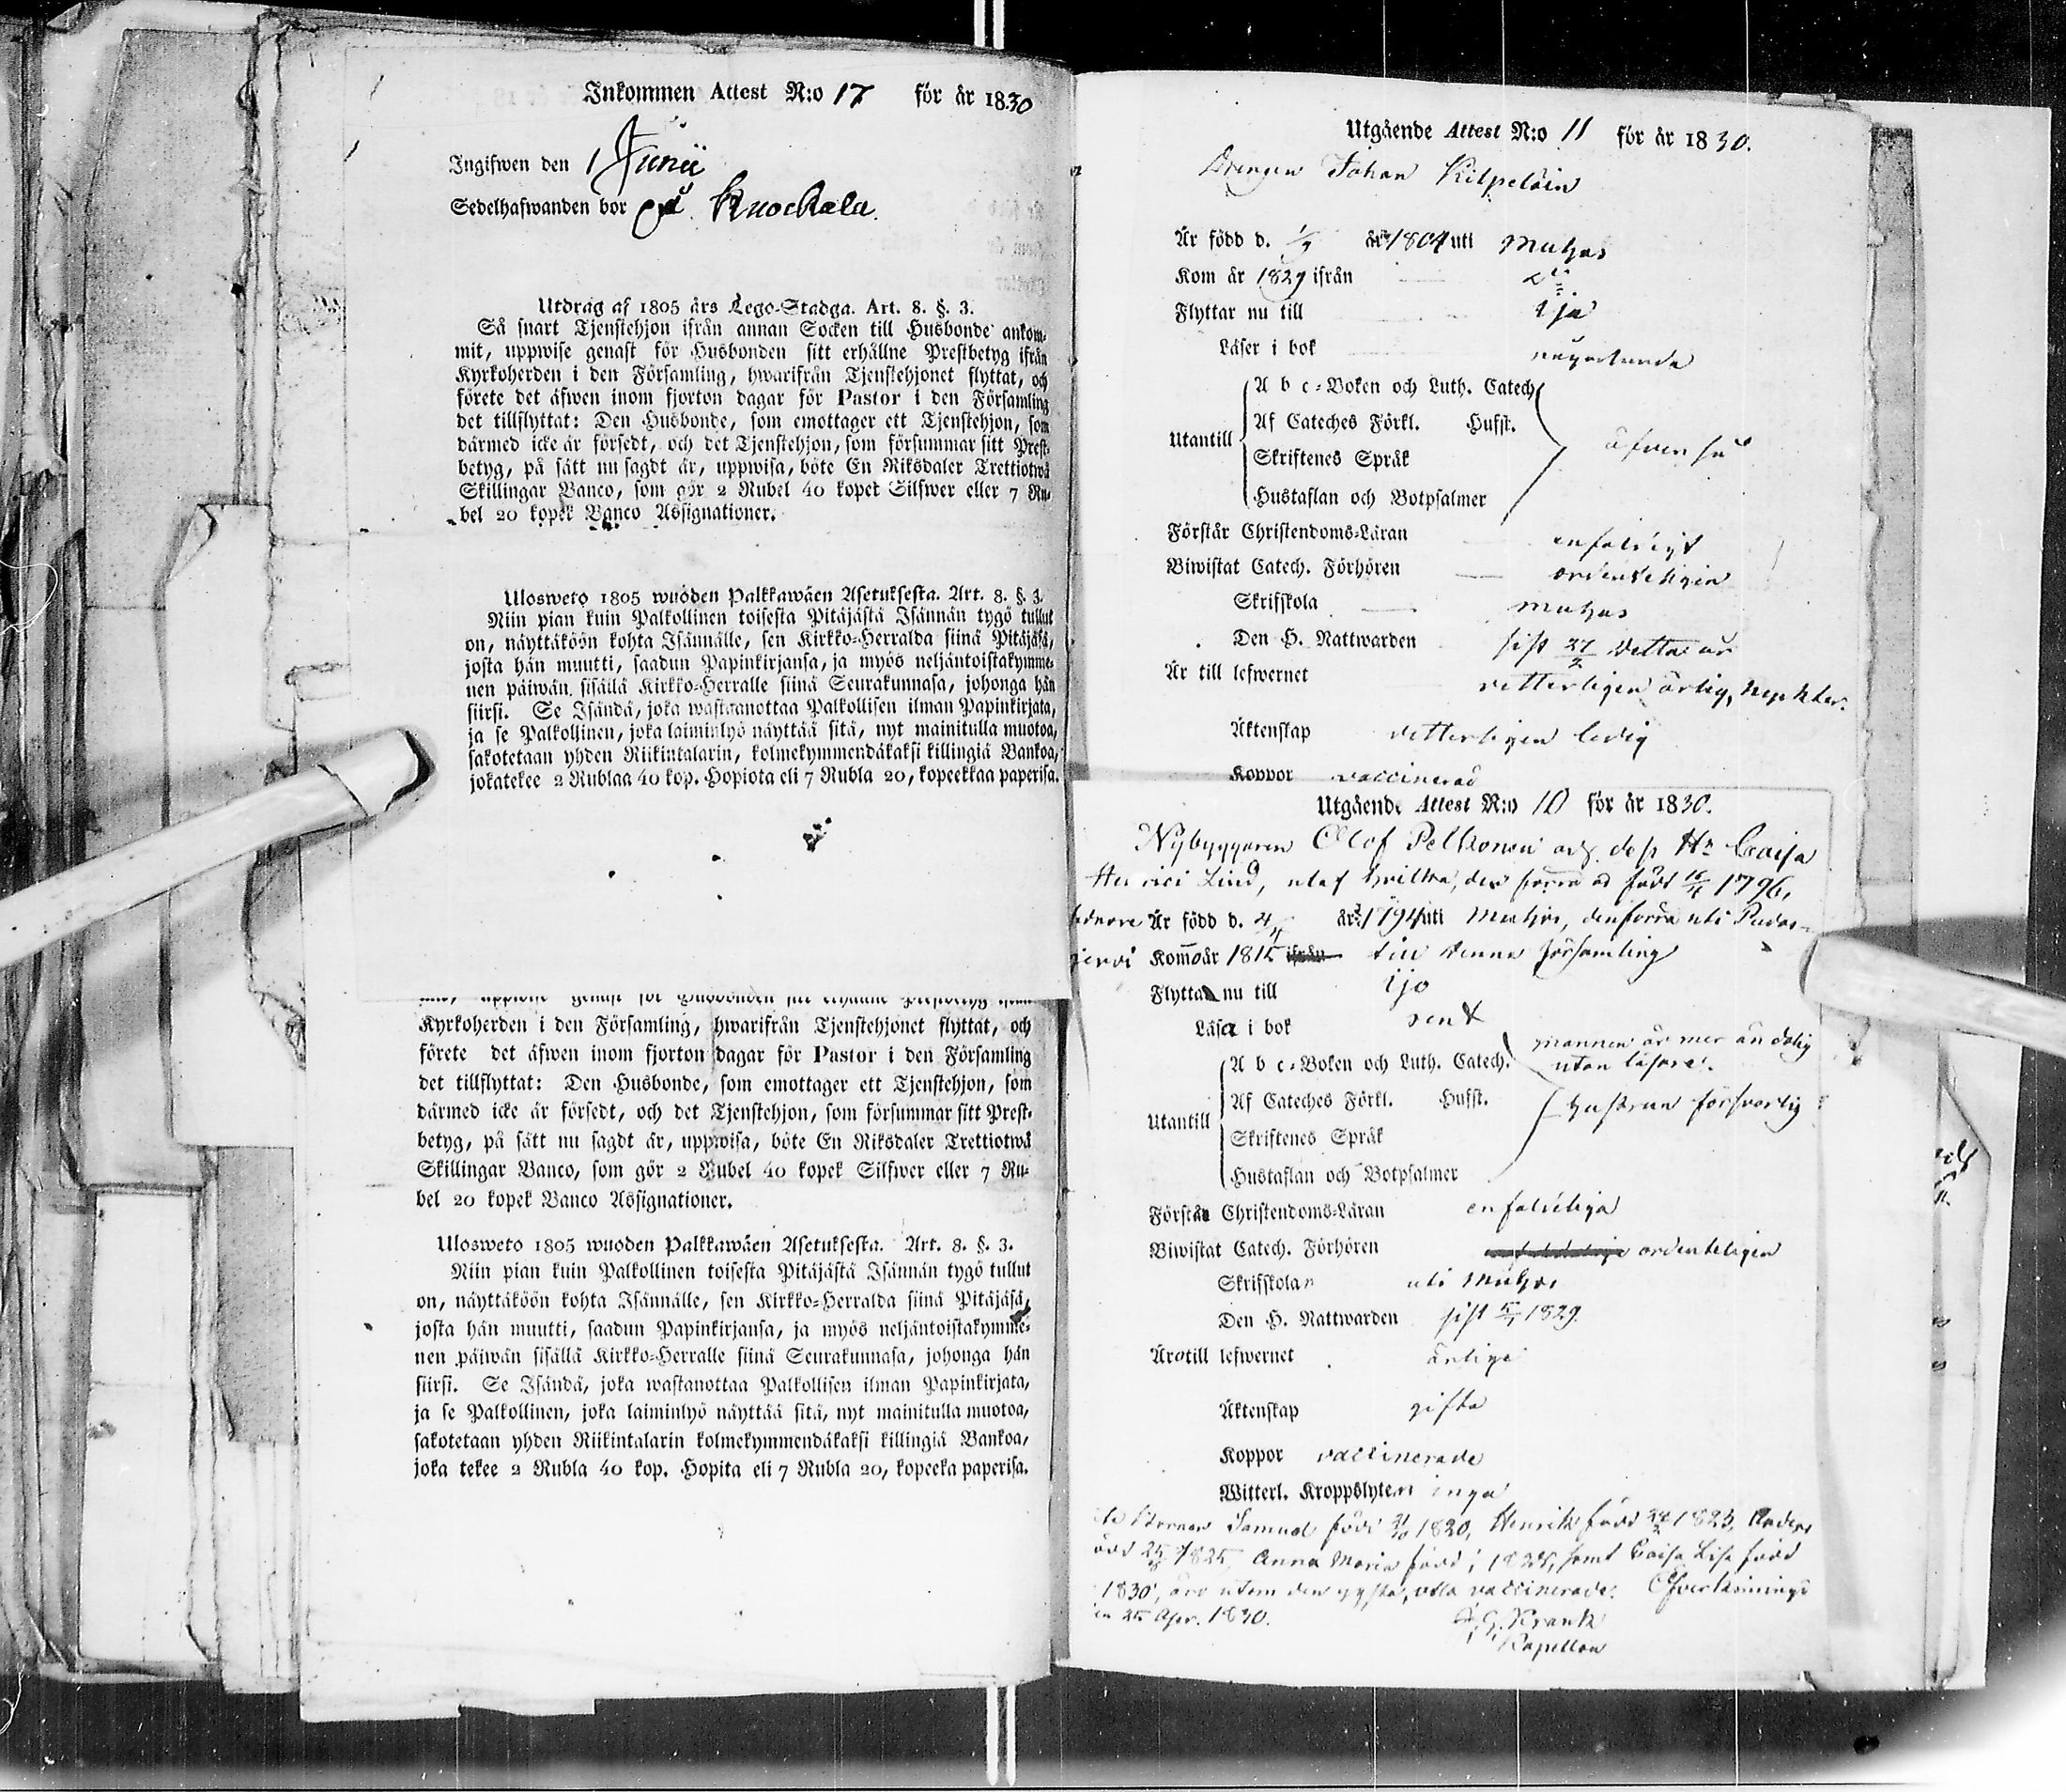 Inkommen Attest N:o 17 för år 1830
Ingifwen den 1 Junii
Sedelhafwanden bor på Knockala
Utdrag af 1805 års Lego-Stadga. Art. 8. §. 3.
Så snart Tjenstehjon ifrån annan Socken till Husbonde ankom-
mit, uppwise genast för Husbonden sitt erhållne Prestbetyg ifrån
Kyrkoherden i den Församling, hwarifrån Tjenstehjonet flyttat, och
förete det äfwen inom fjorton dagar för Pastor i den Församling
det tillflyttat: Den Husbonde, som emottager ett Tjenstehjon, som
därmed icke är försedt, och det Tjenstehjon, som försummar sitt Prest-
betyg, på sätt nu sagdt är, uppwisa, böte En Riksdaler Trettiotwå
Skillingar Banco, som gör 2 Rubel 40 kopek Silfwer eller 7 Ru-
bel 20 kopek Banco Assignationer.
Ulosweto 1805 wuoden Palkkawäen Asetuksesta. Art. 8. §. 3.
Niin pian kuin Palkollinen toisesta Pitäjästä Isännän tygö tullut
on, näyttäköön kohta Isännälle, sen Kirkko-Herralda siinä Pitäjäsä,
josta hän muutti, saadun Papinkirjansa, ja myös neljäntoistakymme-
nen päiwän sisällä Kirkko-Herralle siinä Seurakunnasa, johonga hän
siirsi. Se Isändä, joka wastaanottaa Palkollisen ilman Papinkirjata,
ja se Palkollinen, joka laiminlyö näyttää sitä, nyt mainitulla muotoa,
sakotetaan yhden Riikintalarin, kolmekymmendäkaksi killingiä Bankoa,
jokatekee 2 Rublaa 40 kop. Hopiota eli 7 Rubla 20, kopeekkaa paperisa.
Kyrkoherden i den Församling, hwarifrån Tjenstehjonet flyttat, och
förete det äfwen inom fjorton dagar för Pastor i den Församling
det tillflyttat: Den Husbonde, som emottager ett Tjenstehjon, som
därmed icke är försedt, och det Tjenstehjon, som försummar sitt Prest-
betyg, på sätt nu sagdt är, uppwisa, böte En Riksdaler Trettiotwå
Skillingar Banco, som gör 2 Rubel 40 kopek Silfwer eller 7 Ru-
bel 20 kopek Banco Assignationer.
Ulosweto 1805 wuoden Palkkawäen Asetuksesta. Art. 8. §. 3.
Niin pian kuin Palkollinen toisesta Pitäjästä Isännän tygö tullut
on, näyttäköön kohta Isännälle, sen Kirkko-Herralda siinä Pitäjäsä,
josta hän muutti, saadun Papinkirjansa, ja myös neljäntoistakymme-
nen päiwän sisällä Kirkko-Herralle siinä Seurakunnasa, johonga hän
siirsi. Se Isändä, joka wastanottaa Palkollisen ilman Papinkirjata,
ja se Palkollinen, joka laiminlyö näyttää sitä, nyt mainitulla muotoa,
sakotetaan yhden Riikintalarin kolmekymmendäkaksi killingiä Bankoa,
joka tekee 2 Rubla 40 kop. Hopita eli 7 Rubla 20, kopeeka paperisa.
Utgående Attest N:o 11 för år 1830.
Drengen Johan Kilpeläin
Är född d. år 1804 uti Muhos
Kom år 1829 ifrån d:o
Flyttar nu till Ijo
Läser i bok någorlunda
A b c-Boken och Luth. Catech.
Af Cateches Förkl. Husst.
Utantill äfven så
Skriftenes Språk
Hustaflan och Botpsalmer
Förstår Christendoms-Läran enfaldigt
Biwistat Catech. Förhören ordenteligen
Skrifskola Muhos
Den H. Nattwarden sist 27/2 detta år
Är till lefwernet vetterligen ärlig, nyckter.
Äktenskap vetterligen ledig
Koppor vaccinerad
Utgående Attest N:o 10 för år 1830.
Nybyggaren Olof Pelkonen och dess Hu Caisa
Henrici Lind, utaf hvilka, den förra är född 1796,
sednare Är född d. år 1794 uti Muhos, den förra uti Pudas-
jervi Kommo år 1815 till denna församling
Flytta nu till Ijo
Läsa i bok rent
A b c-Boken och Luth. Catech. mannen är mer än dålig
utan läsare.
Af Cateches Förkl. Husst. hustrun försvarlig
Utantill
Skriftenes Språk
Hustaflan och Botpsalmer
Förstår Christendoms-Läran enfaldiga
Biwistat Catech. Förhören ordenteligen
Skrifskolan uti Muhos
Den H. Nattwarden sist 1829.
Äro till lefwernet ärliga
Äktenskap gifta
Koppor vaccinerade
Witterl. Kroppslyten inga
Barnen Samuel född 1820, Henrik född 1823, Anders
född 1825, Anna Maria född 1828, samt Caisa Lisa född
1830, äro utom den yngsta, alla vaccinerade.
den 25 Apr. 1830. Krank
Kapellan